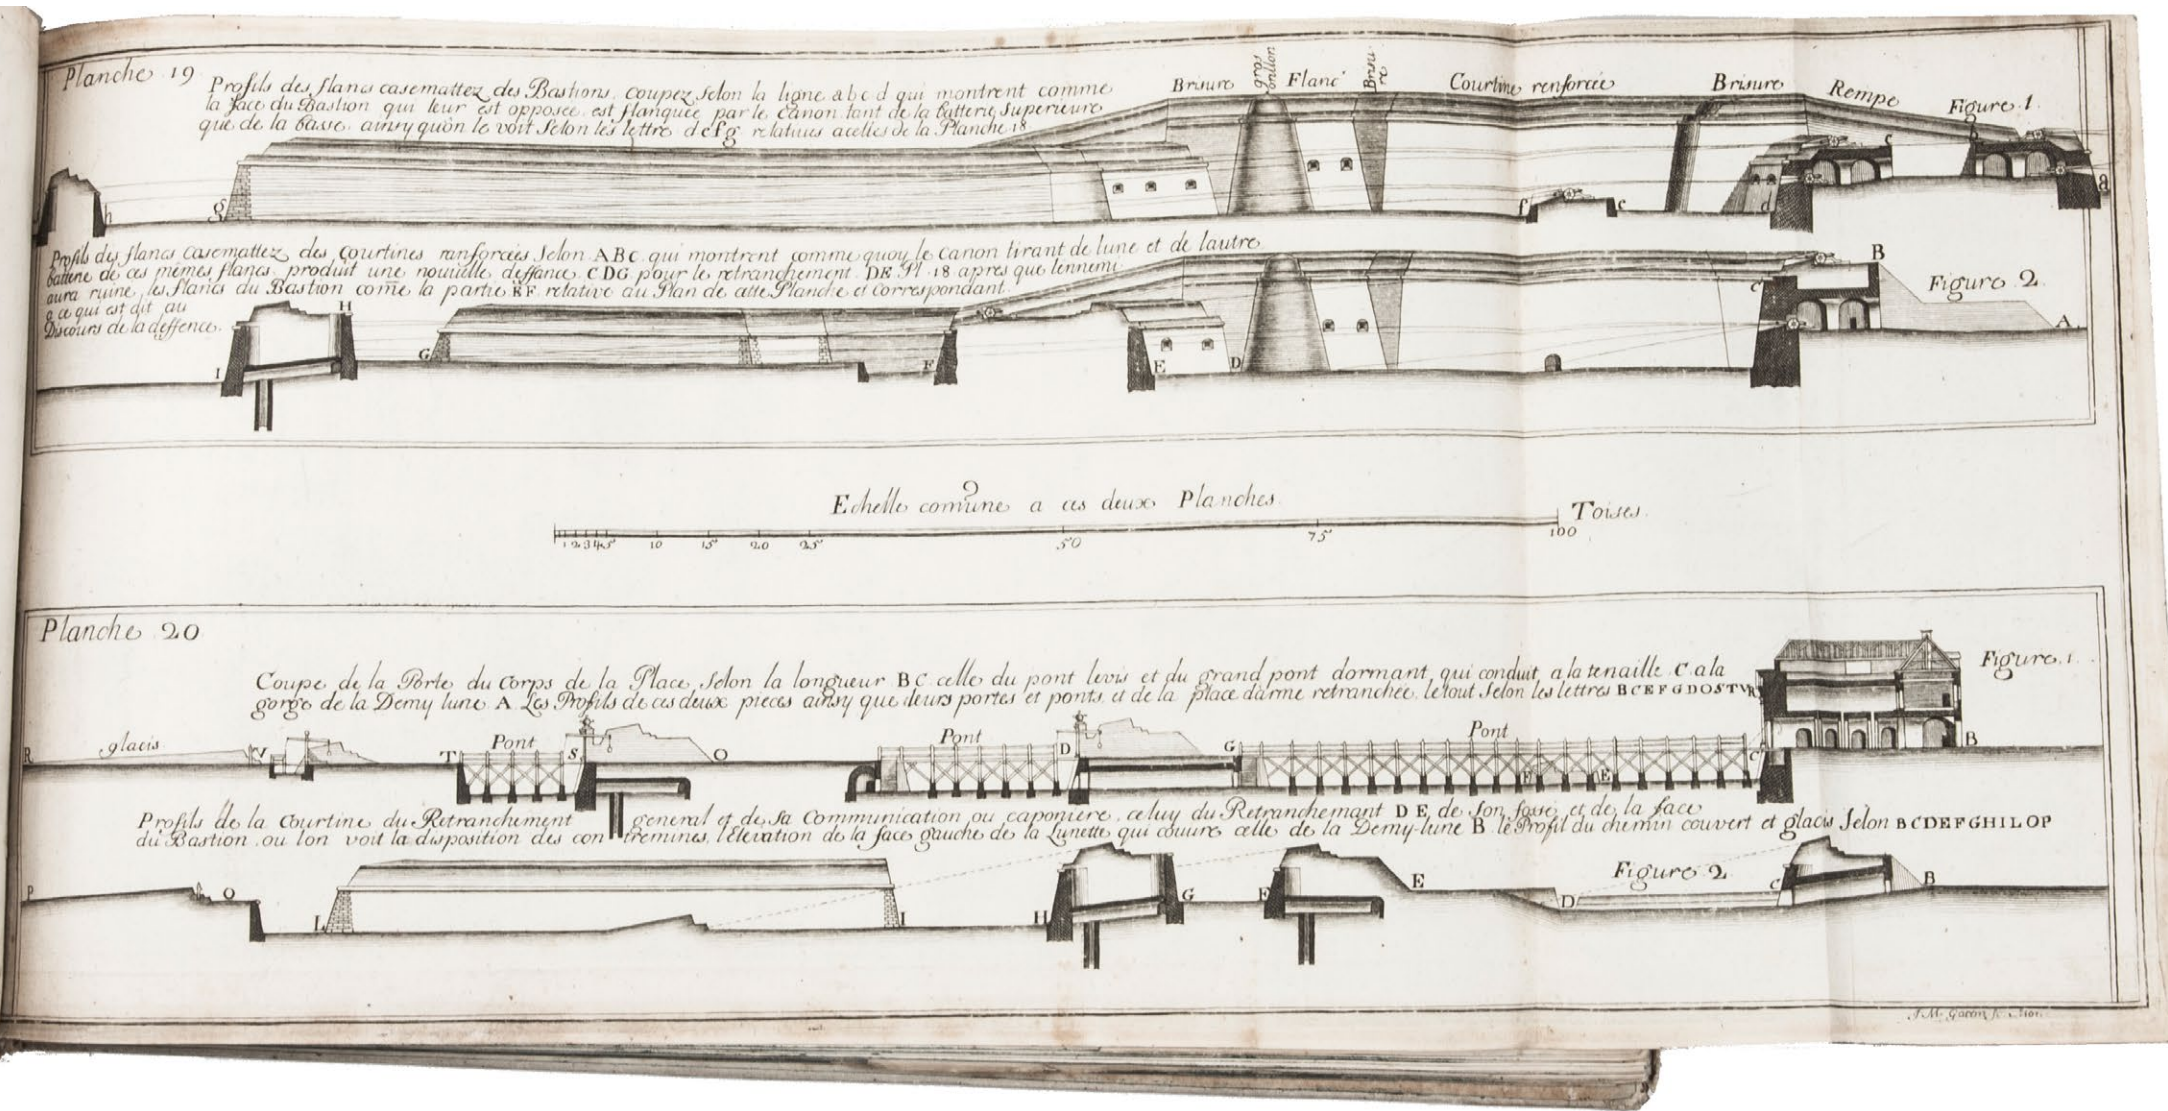 Planche 19
Profils des flancs casemattez des Bastions, coupez selon la ligne abcd qui montrent comme
la face du Bastion qui leur est opposée est flanquée par le Canon tant de la batterie Superieure
que de la basse, ainsy qu'on le voit Selon les lettre defg relatiues acelles de la Planche 18
Brisure
gros orillon
Flanc
Brisure
Courtine renforcée
Brisure
Rempe
Figure 1.
h
g
f
e
d
c
b
a
Profils des flancs Casemattez des Courtines renforcées Selon ABC qui montrent comme quoy le Canon tirant de lune et de lautre
batterie de ces mêmes flancs produit une nouuelle deffance CDG pour le retranchement DE Pl. 18 apres que lennemi
aura ruiné les flancs du Bastion come la partie EF relative au Plan de cette Planche et Correspondant
a ce qui est dit au
Discours de la deffence.
Figure 2.
I
H
G
F
E
D
C
B
A
Echelle comune a ces deux Planches.
1 2 3 4 5 10 15 20 25 50 75 100
Toises.
Planche 20
Coupe de la Porte du Corps de la Place, Selon la longueur BC celle du pont levis et du grand pont dormant, qui conduit a la tenaille C a la
gorge de la Demy lune A Les Profils de ces deux pieces ainsy que leurs portes et ponts et de la place darme retranchée, le tout Selon les lettres BCEFGDOSTVR
Figure 1.
R
glacis
V
T
Pont
S
O
Pont
D
G
Pont
F
E
C
B
Profils de la Courtine du Retranchement general et de sa Communication ou caponiere, celuy du Retranchemant DE de son fossé et de la face
du Bastion, ou lon voit la disposition des contremines, l'Elevation de la face gauche de la Lunette qui couure celle de la Demy-lune B le Profil du chemin couvert et glacis Selon BCDEFGHILOP
Figure 2
P
O
L
I
H
G
F
E
D
C
B